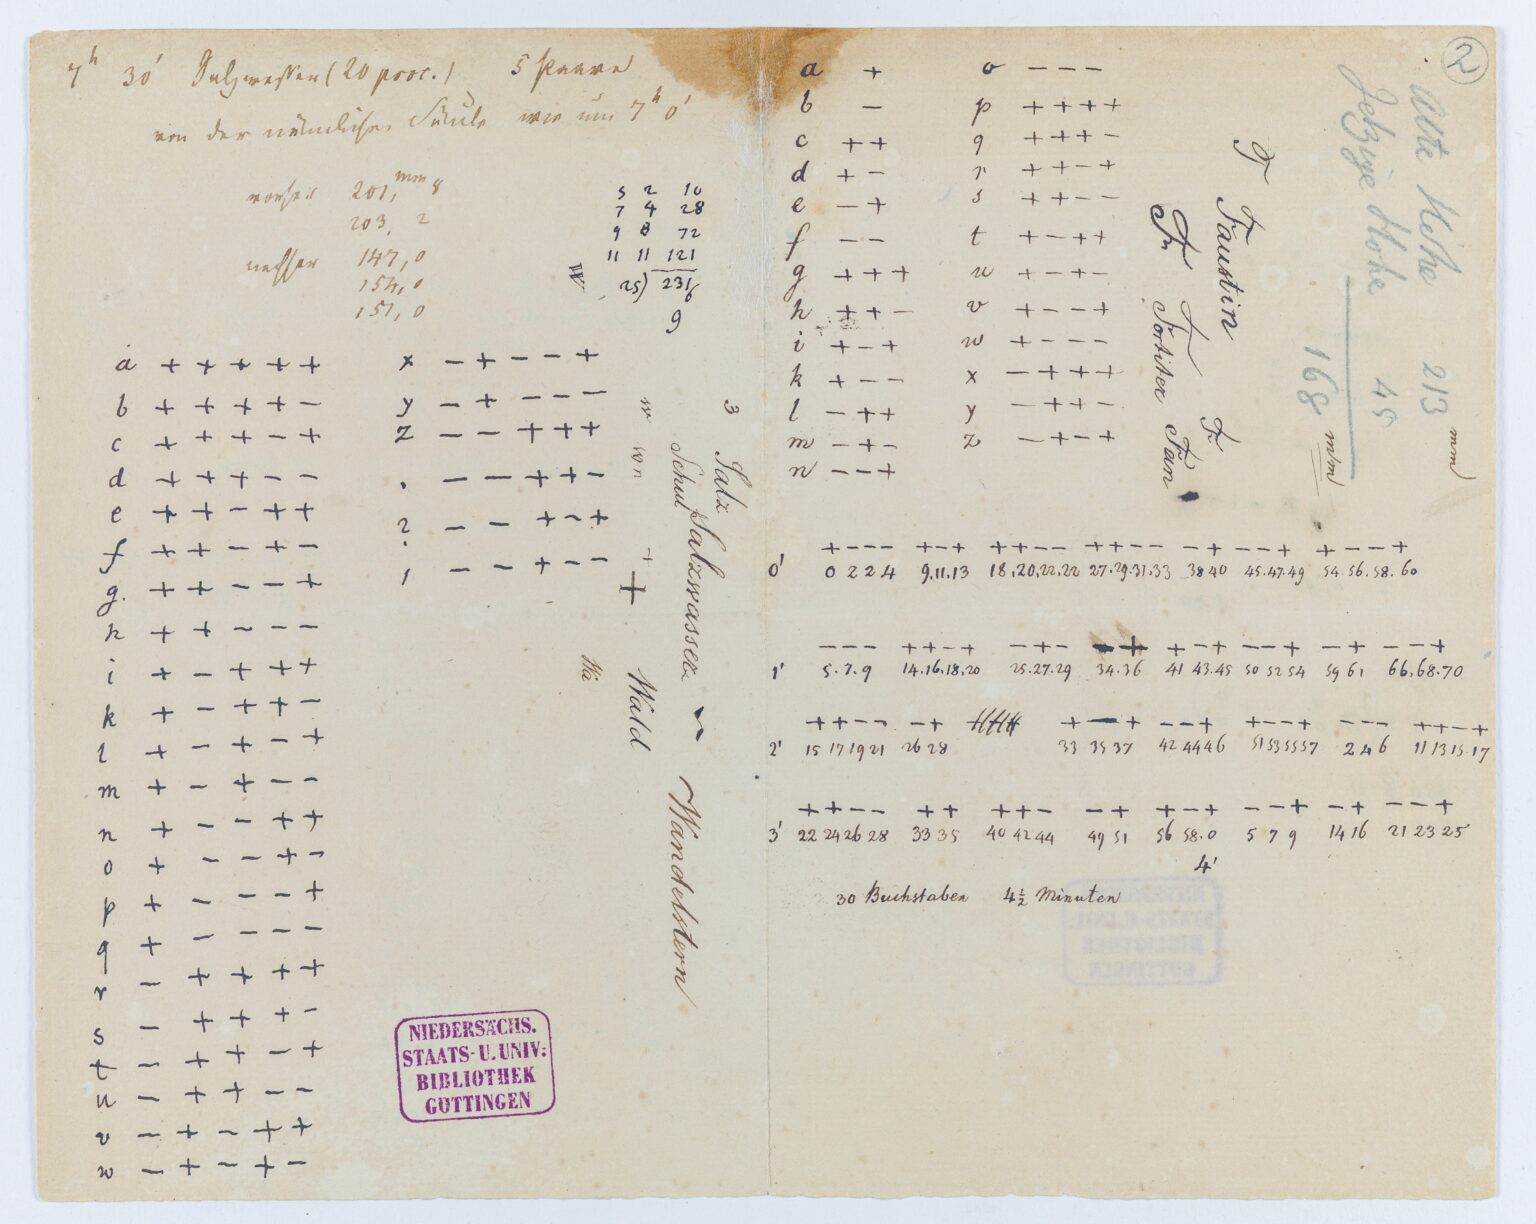 7h 30' Salzwasser (20 proc.) 5 Paare
von der nämlichen Säule wie um 7h 0'
vorher 201,mm 8
203, 2
nachher 147,0
154,0
151,0
5 2 10
7 4 28
9 8 72
11 11 121
25) 231/6
9
W
a + + + + +
b + + + + −
c + + + − +
d + + + − −
e + + − + +
f + + − + −
g. + + − − +
h + + − − −
i + − + + +
k + − + + −
l + − + − +
m + − + − −
n + − − + +
o + − − + −
p + − − − +
q + − − − −
r − + + + +
s − + + + −
t − + + − +
u − + + − −
v − + − + +
w − + − + −
x − + − − +
y − + − − −
z − − + + +
. − − + + −
? − − + − +
! − − + − −
3
Salz
Schul Salzwasser
Wandelstern
w wn + +
Wald
Wä
NIEDERSÄCHS.
STAATS- U. UNIV:
BIBLIOTHEK
GÖTTINGEN
a +
b −
c + +
d + −
e − +
f − −
g + + +
h + + −
i + − +
k + − −
l − + +
m − + −
n − − +
o − − −
p + + + +
q + + + −
r + + − +
s + + − −
t + − + +
u + − + −
v + − − +
w + − − −
x − + + +
y − + + −
z − + − +
2
Alte Höhe 213 mm
Jetzige Höhe 45
168 mm
F
Faustin
Fr F Fr
Fortiter Fan
+ − − − + − + + + − − + + − − − + − − − + − − +
0' 0 2 2 4 9.11.13 18.20.22.22 27.29.31.33 38 40 45.47.49 54.56.58.60
− − − + + − + − + − − + + − + − − + − + − − +
1' 5.7.9 14.16.18.20 25.27.29 34.36 41 43.45 50 52 54 59 61 66.68.70
+ + − − − + + − + − − + + − − + − − − + + − +
2' 15 17 19 21 26 28 33 35 37 42 44 46 51 53 55 57 2 4 6 11 13 15 17
+ + − − + + + + − − + + − + − − + − + − − +
3' 22 24 26 28 33 35 40 42 44 49 51 56 58.0 5 7 9 14 16 21 23 25
4'
30 Buchstaben 4½ Minuten